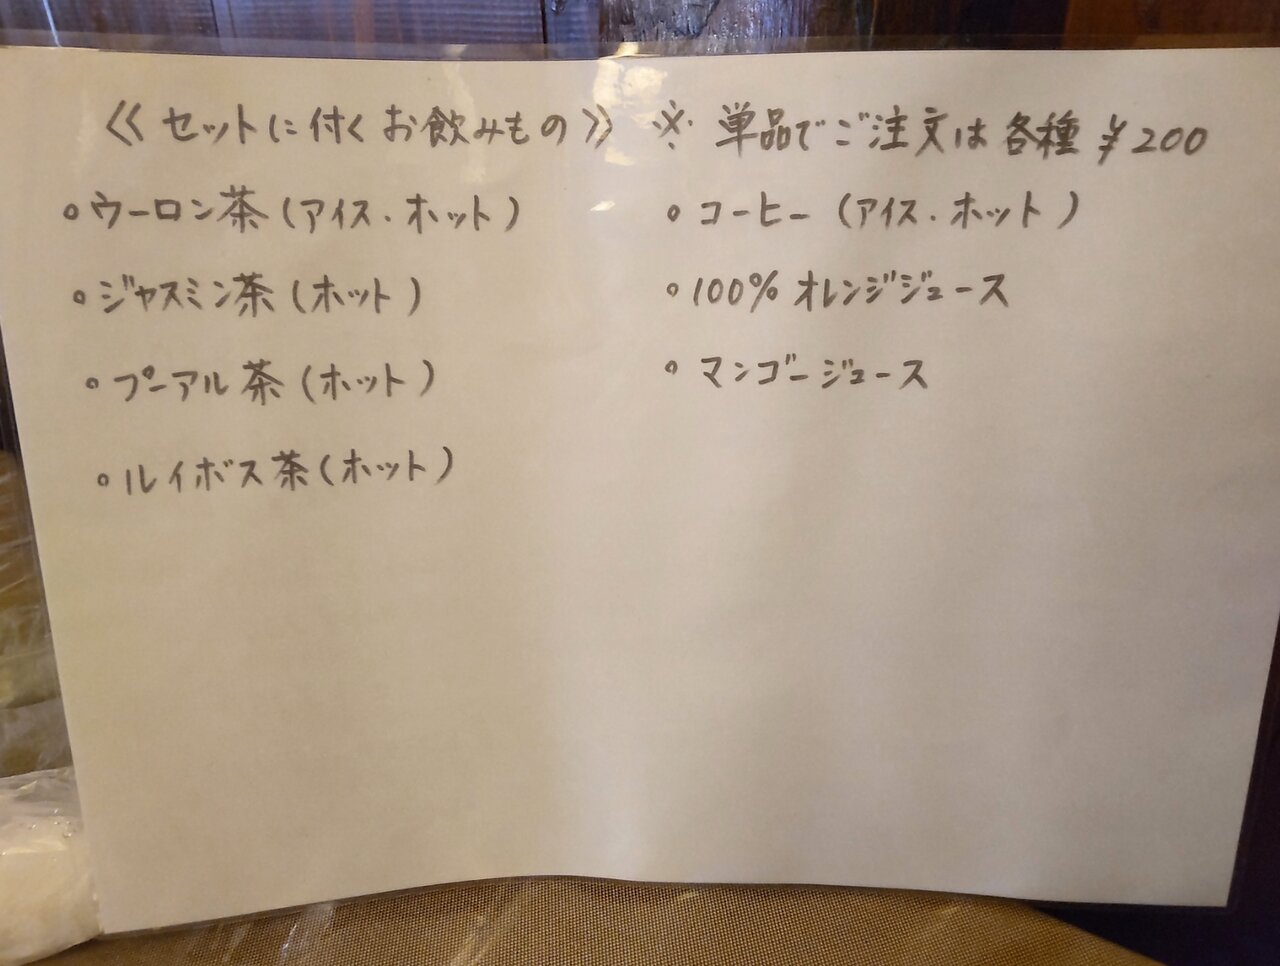 ≪セットに付くお飲みもの≫ ※ 単品でご注文は各種 ¥200
○ウーロン茶(アイス・ホット)
○ジャスミン茶(ホット)
○プーアル茶(ホット)
○ルイボス茶(ホット)
○コーヒー(アイス・ホット)
○100%オレンジジュース
○マンゴージュース